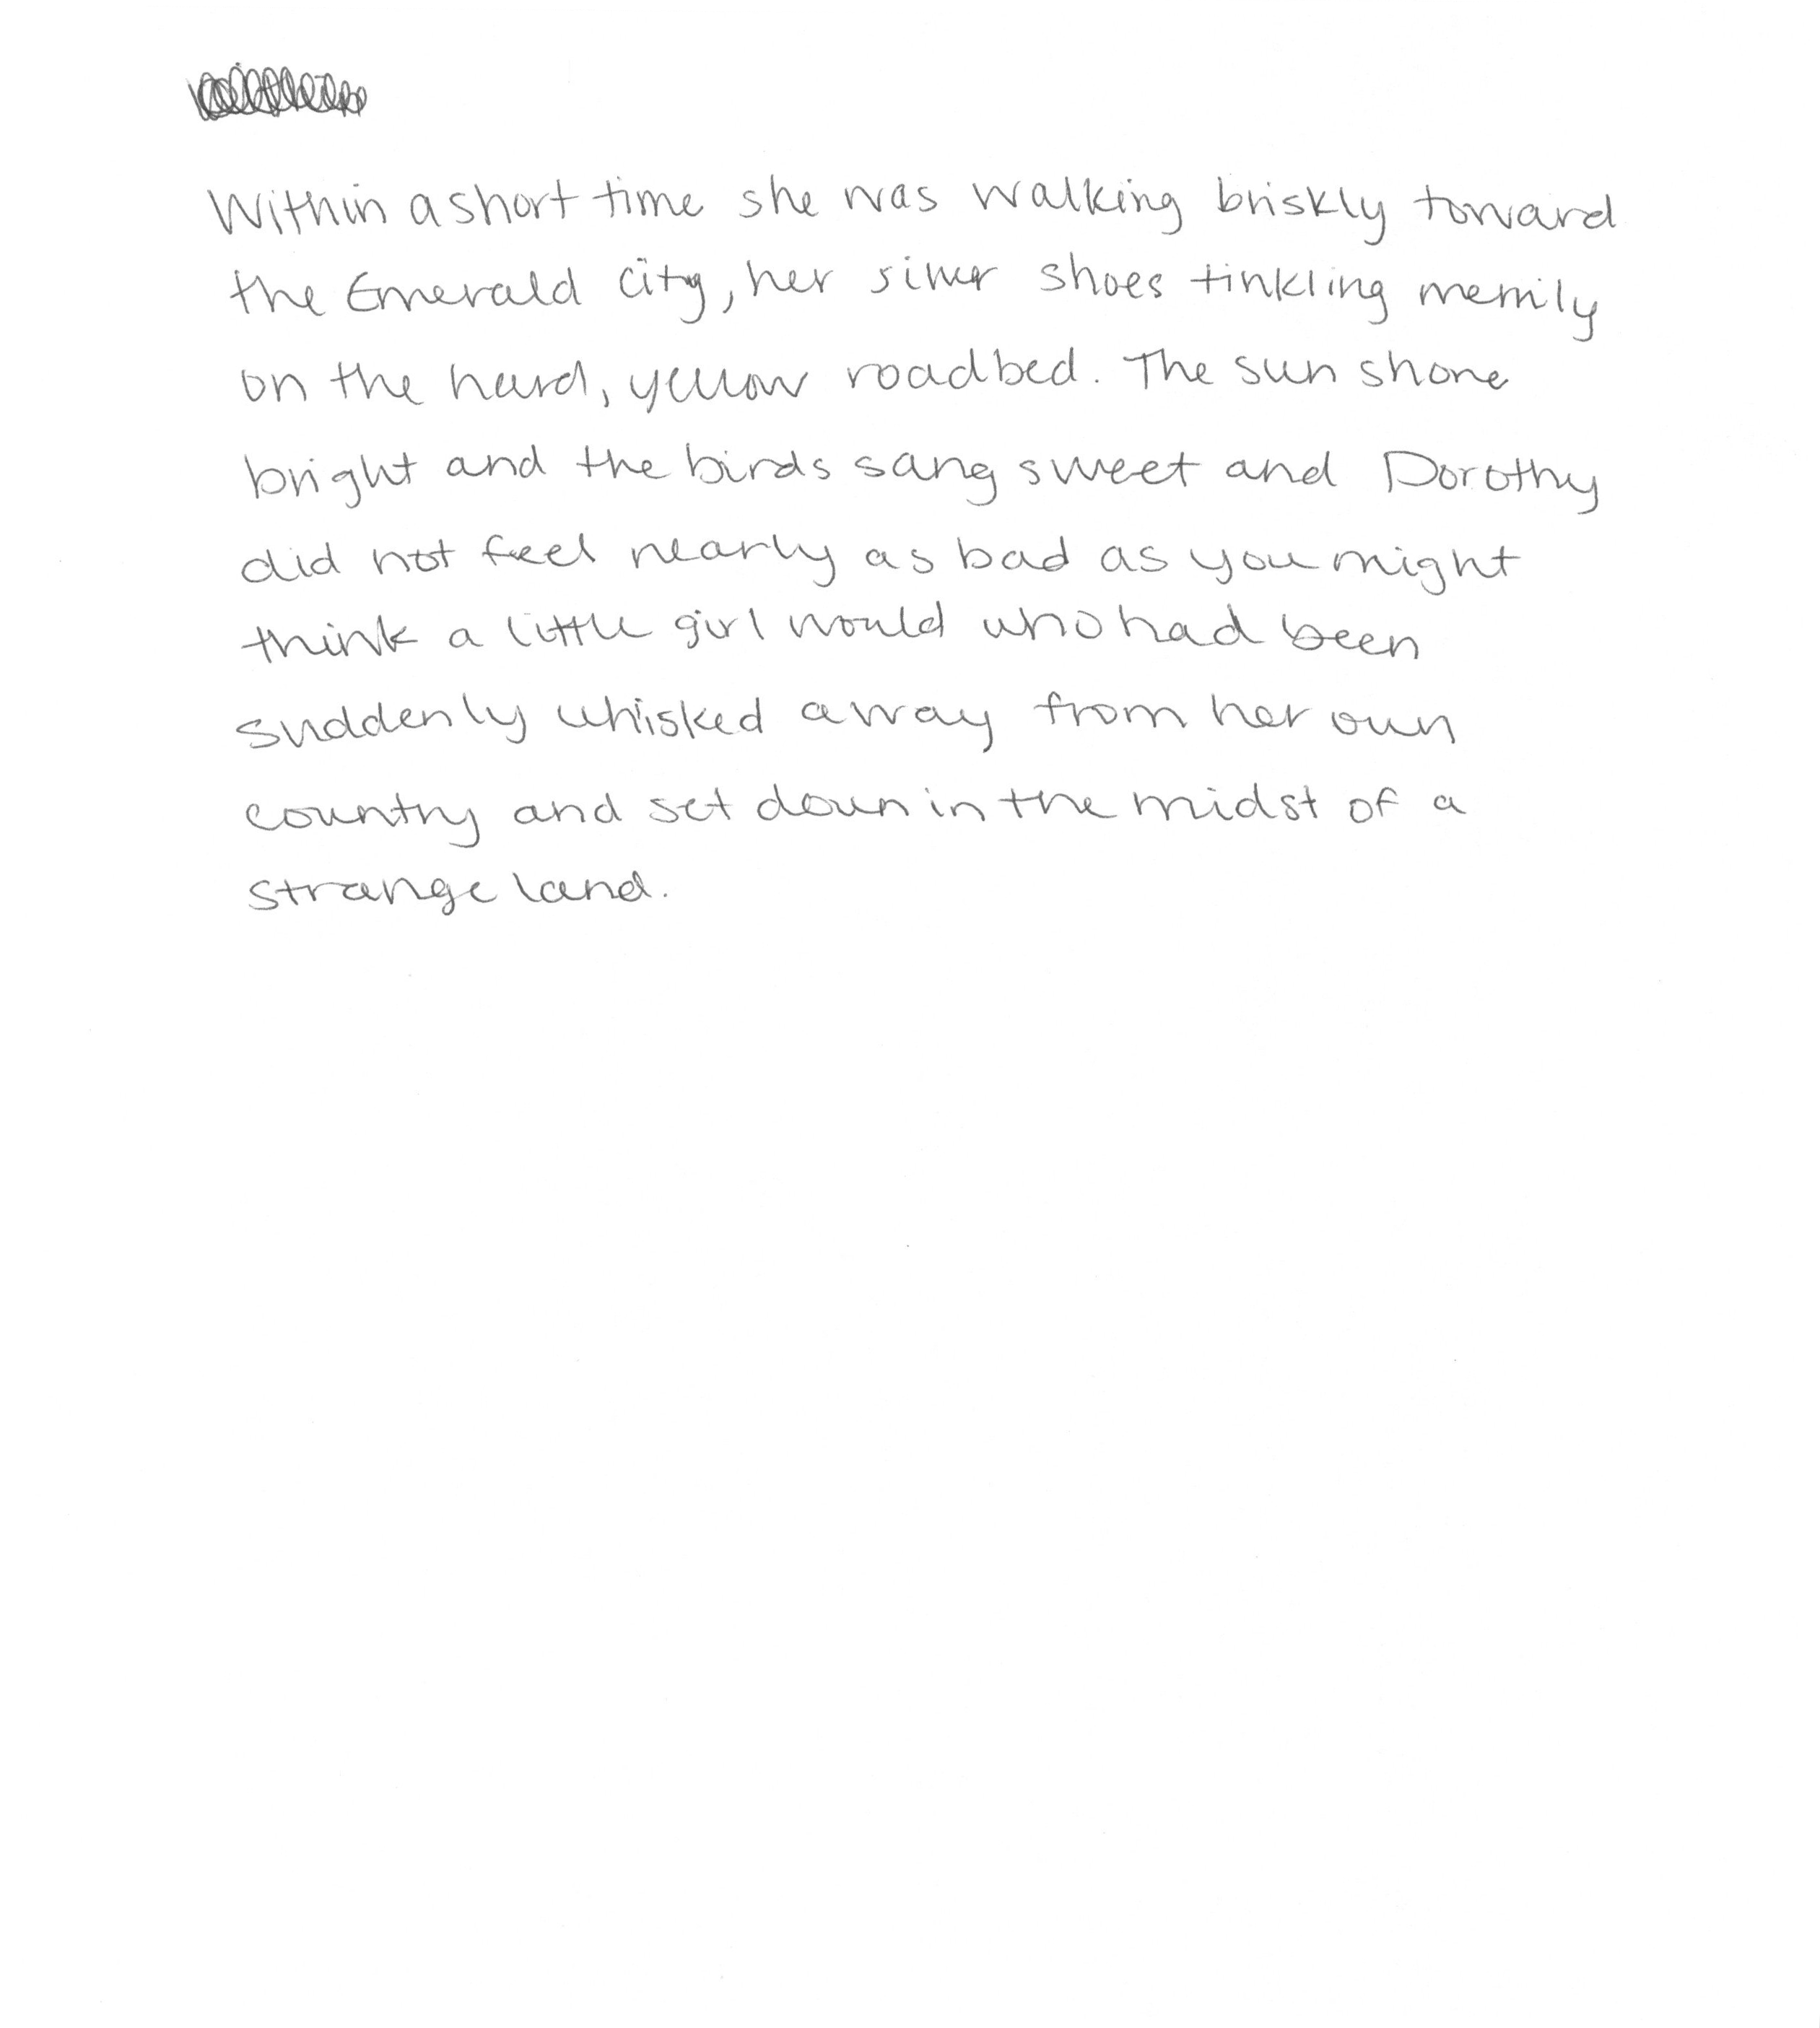 Within a short time she was walking briskly toward
the Emerald City, her silver shoes tinkling merrily
on the hard, yellow roadbed. The sun shone
bright and the birds sang sweet and Dorothy
did not feel nearly as bad as you might
think a little girl would who had been
suddenly whisked away from her own
country and set down in the midst of a
strange land.